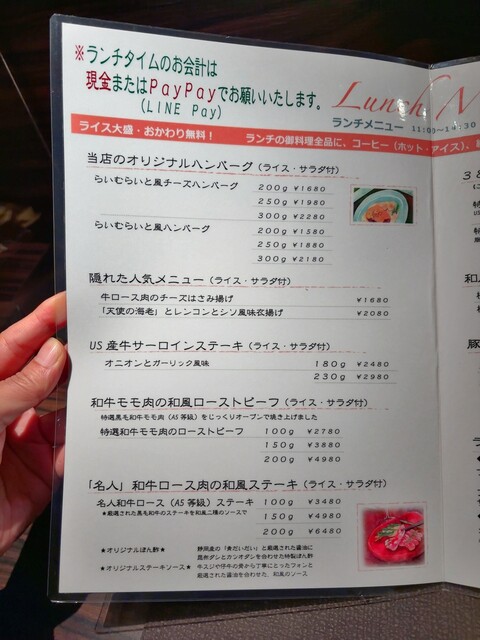 ※ランチタイムのお会計は
現金またはPayPayでお願いいたします。
(LINE Pay)
Lunch M
ランチメニュー 11:00~14:30
ライス大盛・おかわり無料! ランチの御料理全品に、コーヒー(ホット・アイス)、
当店のオリジナルハンバーグ(ライス・サラダ付)
らいむらいと風チーズハンバーグ 200g ¥1680
250g ¥1980
300g ¥2280
らいむらいと風ハンバーグ 200g ¥1580
250g ¥1880
300g ¥2180
隠れた人気メニュー(ライス・サラダ付)
牛ロース肉のチーズはさみ揚げ ¥1680
「天使の海老」とレンコンとシソ風味衣揚げ ¥2080
US産牛サーロインステーキ(ライス・サラダ付)
オニオンとガーリック風味 180g ¥2480
230g ¥2980
和牛モモ肉の和風ローストビーフ(ライス・サラダ付)
特選黒毛和牛モモ肉(A5等級)をじっくりオーブンで焼き上げました
特選和牛モモ肉のローストビーフ 100g ¥2780
150g ¥3880
200g ¥4980
「名人」和牛ロース肉の和風ステーキ(ライス・サラダ付)
名人和牛ロース(A5等級)ステーキ 100g ¥3480
★厳選された黒毛和牛のステーキを和風二種のソースで 150g ¥4980
200g ¥6480
★オリジナルぽん酢★ 静岡産の「食だいだい」と厳選された醤油に
昆布ダシとカツオダシを合わせた特製ぽん酢
★オリジナルステーキソース★ 牛スジや仔牛の骨から丁寧にとったフォンと
厳選された醤油を合わせた、和風のソース